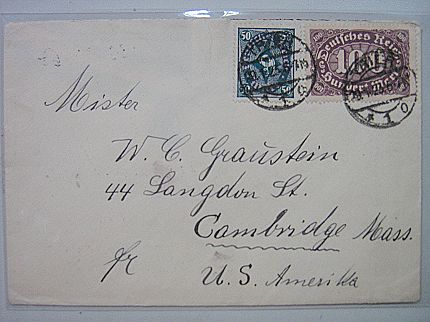 50
Deutsches Reich
100
Mister
W. C. Graustein
44 Langdon St.
Cambridge Mass.
fr
U.S. Amerika